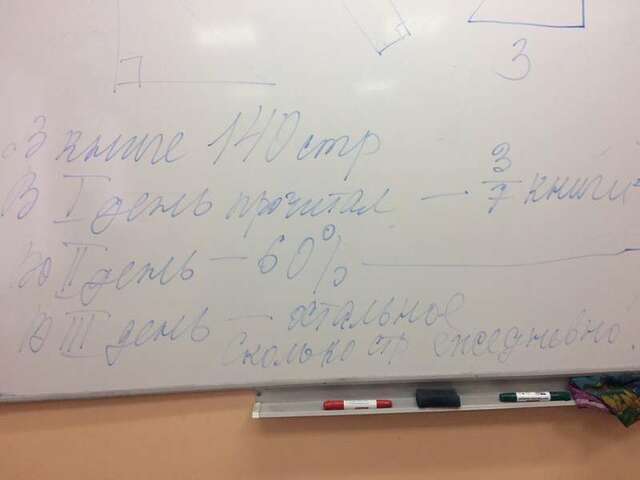 3
В книге 140 стр
В I день прочитал — 3/7 книги
Во II день — 60%
В III день — остальное
Сколько стр ежедневно?